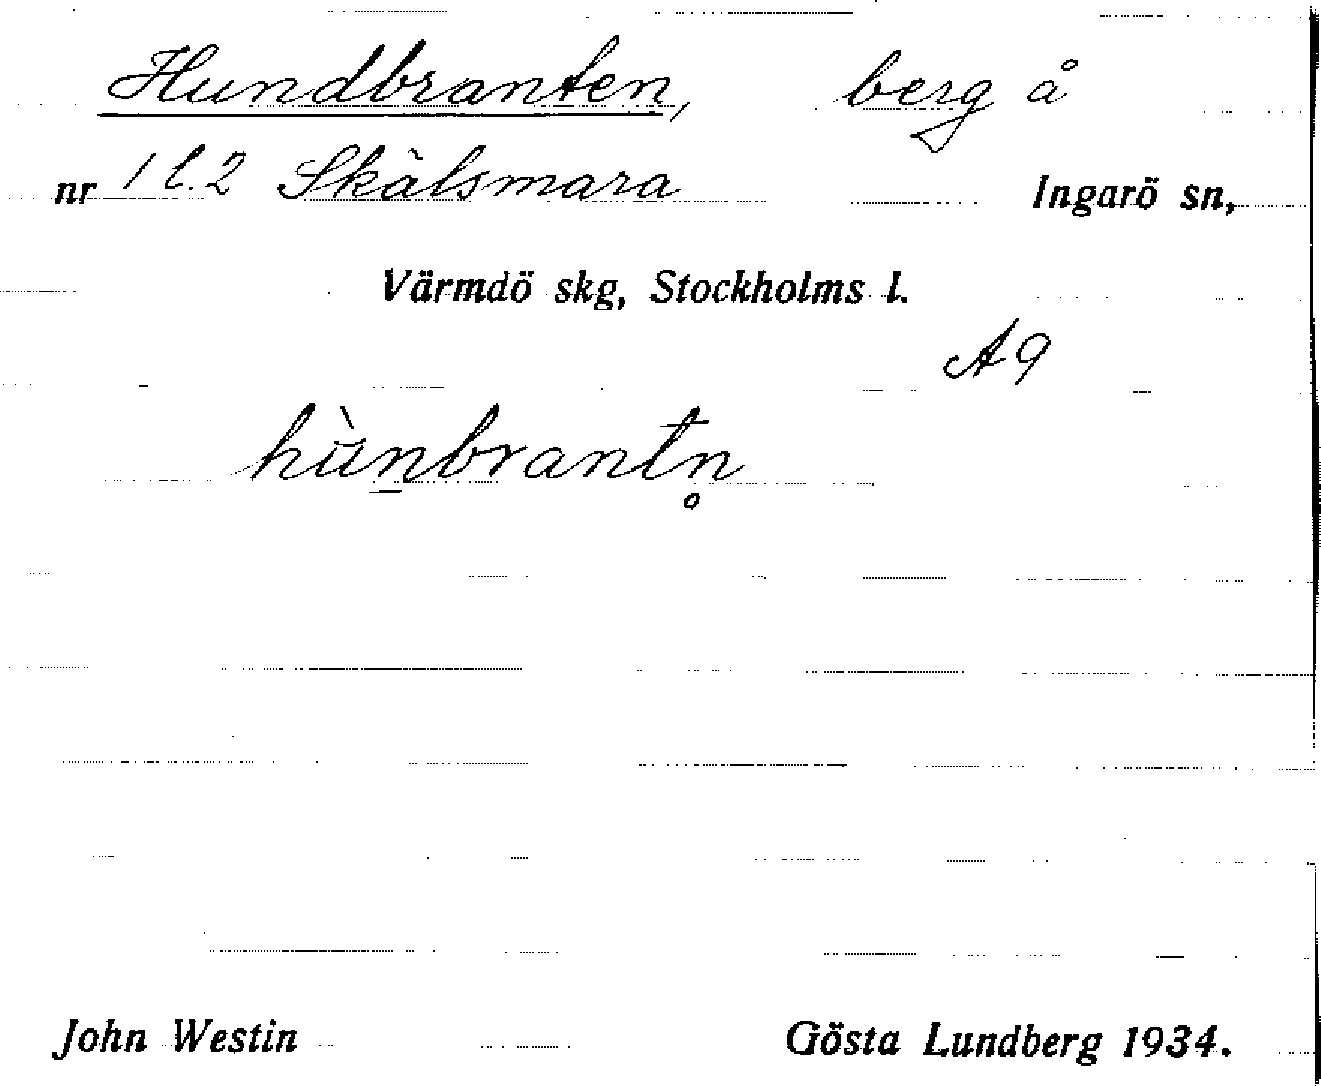 Hundbranten, berg å
nr 1 l.2 Skälsmara Ingarö sn,
Värmdö skg, Stockholms l.
A9
hùn̠brantn̥
John Westin Gösta Lundberg 1934.